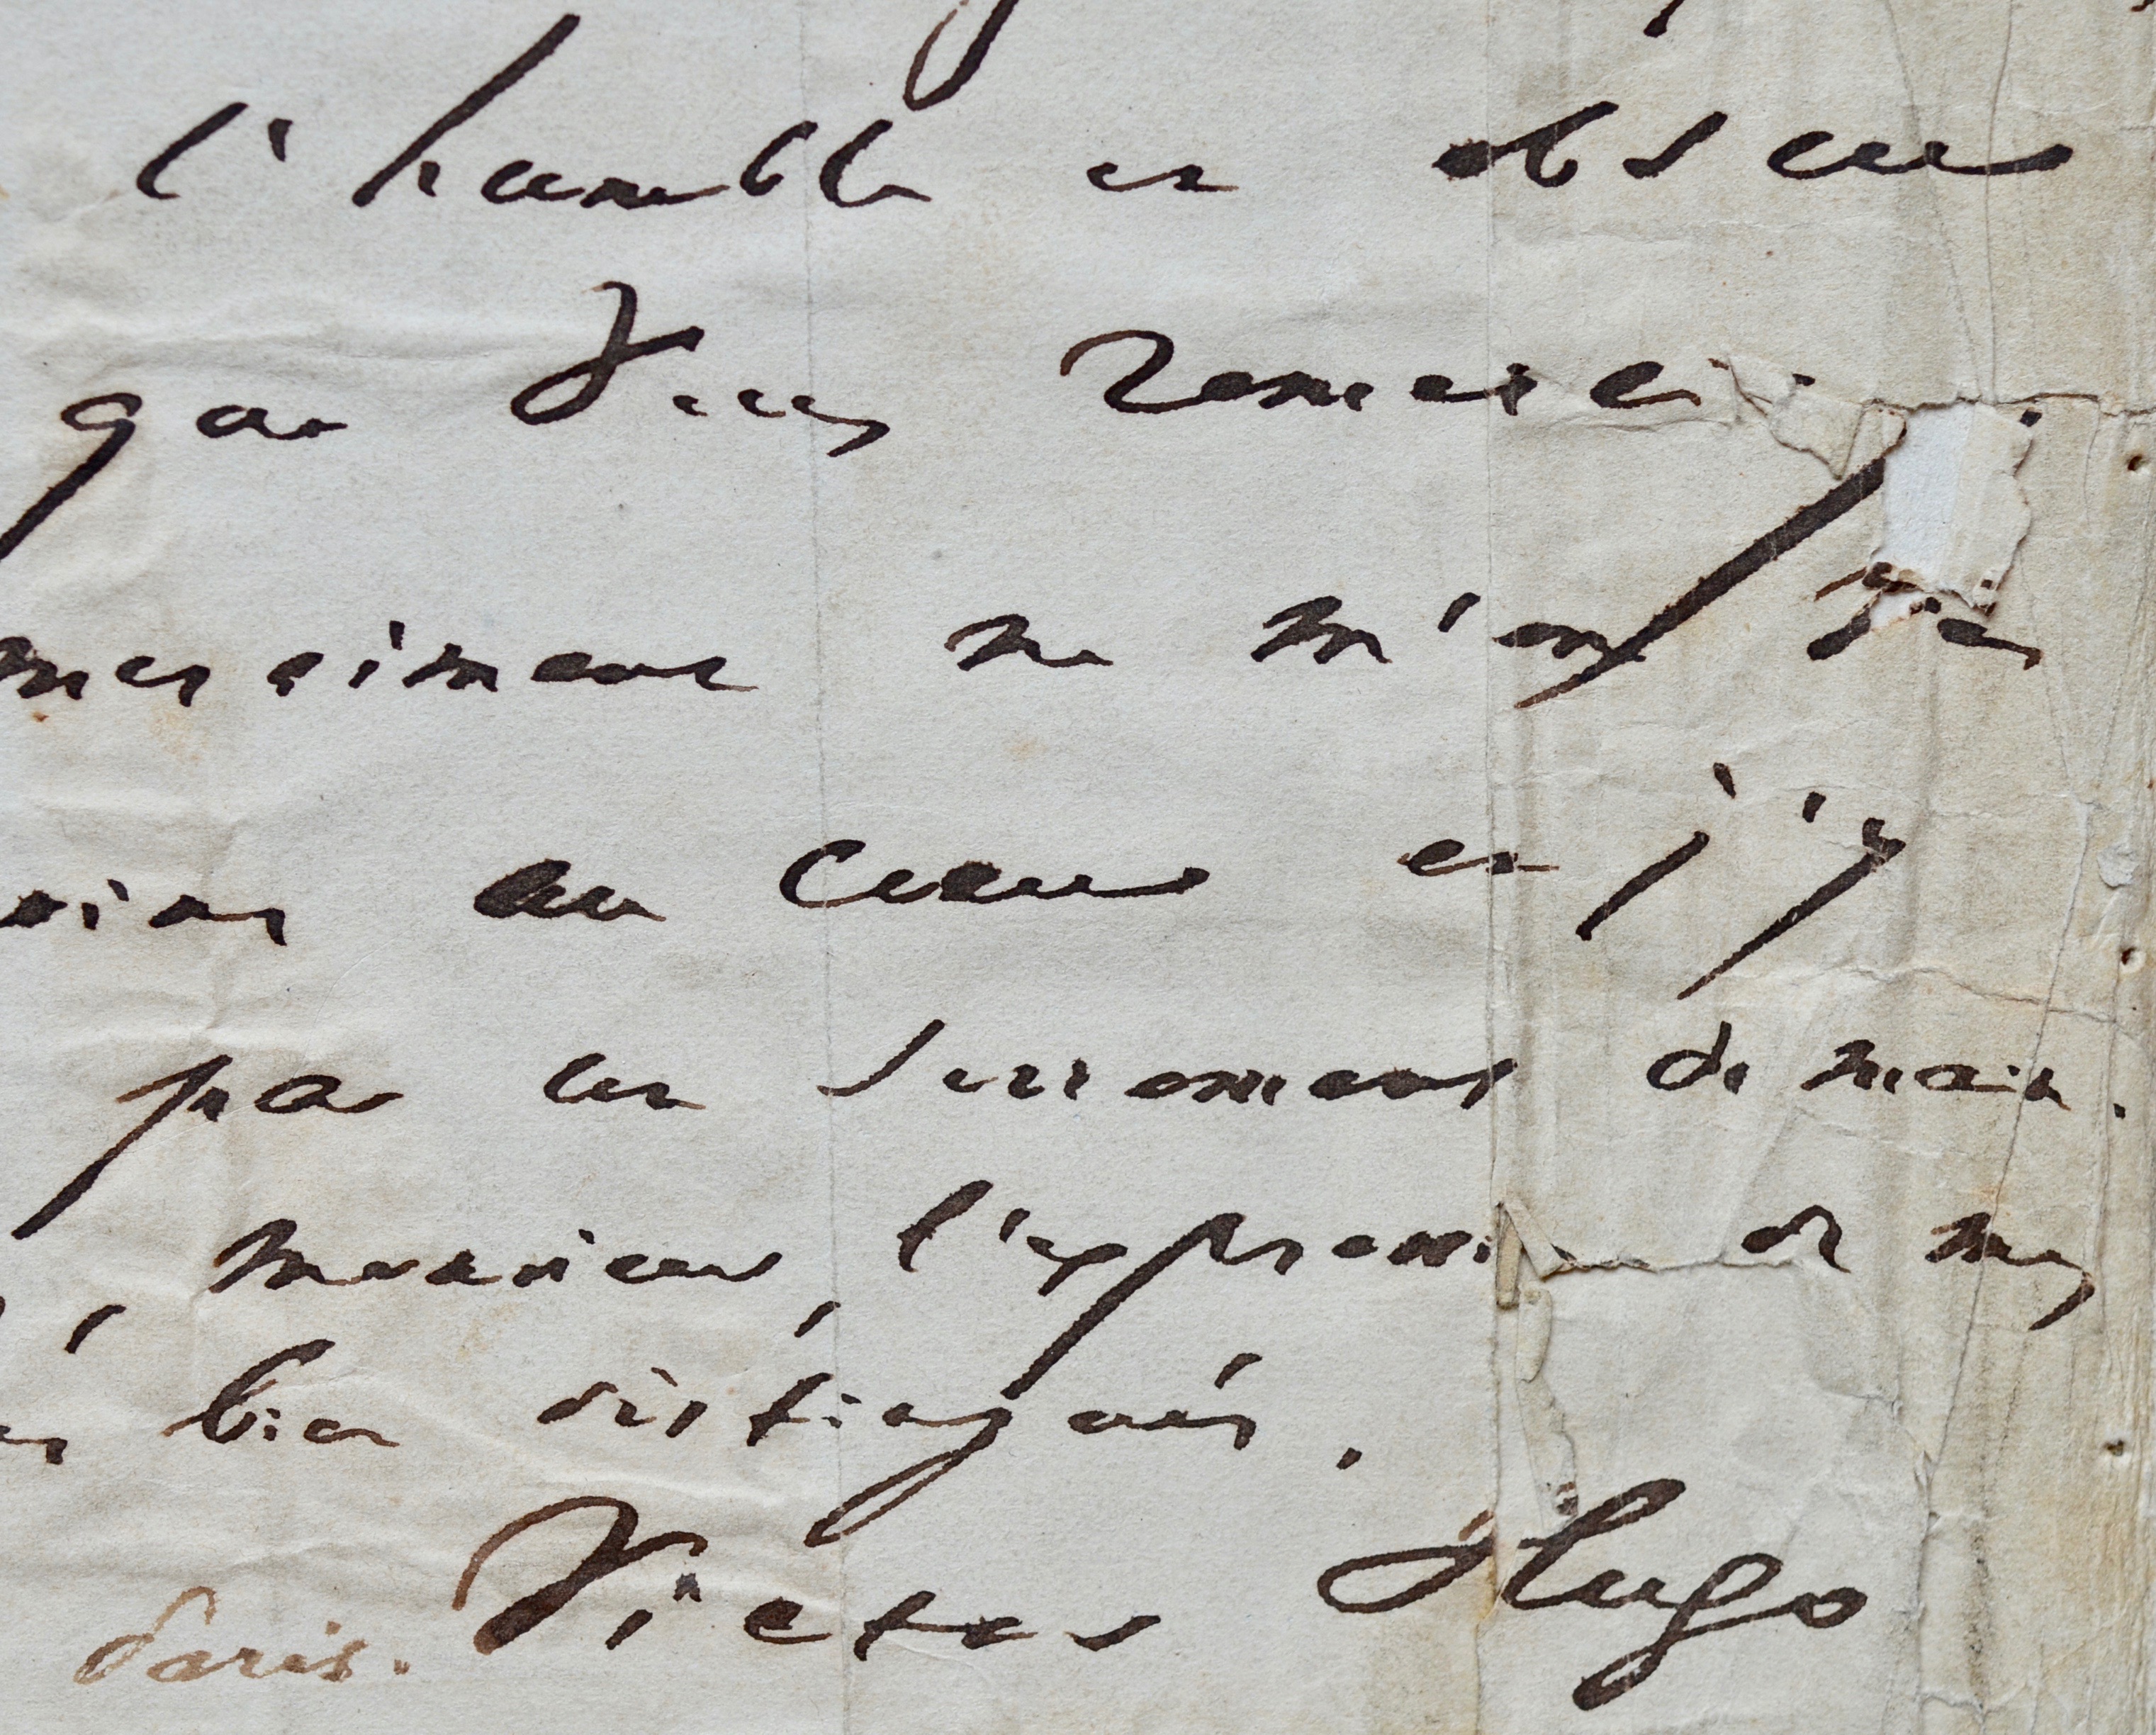 l'humble et obscur
que vous remerci
merciments ne m'ont pas
au cœur et j'y
par un serrement de main.
, monsieur, l'expressi de mes
bien distingués.
Victor Hugo
Paris.